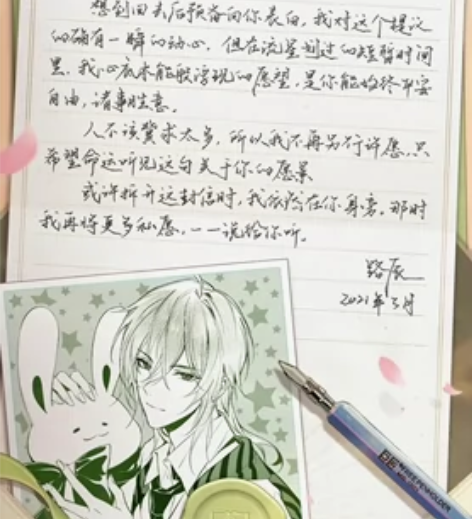 想到回去后预备向你表白，我对这个提议
的确有一瞬的动心。但在流星划过的短暂时间
里，我心底本能般浮现的愿望，是你能始终平安
自由，诸事胜意。
人不该贪求太多，所以我不再另行许愿，只
希望命运听见这句关于你的愿景
或许拆开这封信时，我依然在你身旁。那时
我再将更多私愿，一一说给你听。
路辰
2021年5月